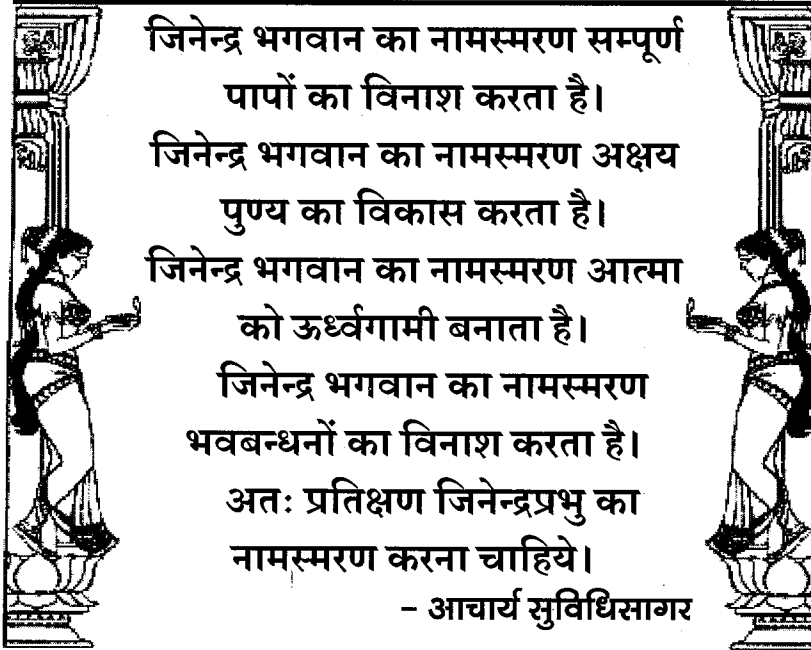 जिनेन्द्र भगवान का नामस्मरण सम्पूर्ण
पापों का विनाश करता है।
जिनेन्द्र भगवान का नामस्मरण अक्षय
पुण्य का विकास करता है।
जिनेन्द्र भगवान का नामस्मरण आत्मा
को ऊर्ध्वगामी बनाता है।
जिनेन्द्र भगवान का नामस्मरण
भवबन्धनों का विनाश करता है।
अतः प्रतिक्षण जिनेन्द्रप्रभु का
नामस्मरण करना चाहिये।
- आचार्य सुविधिसागर